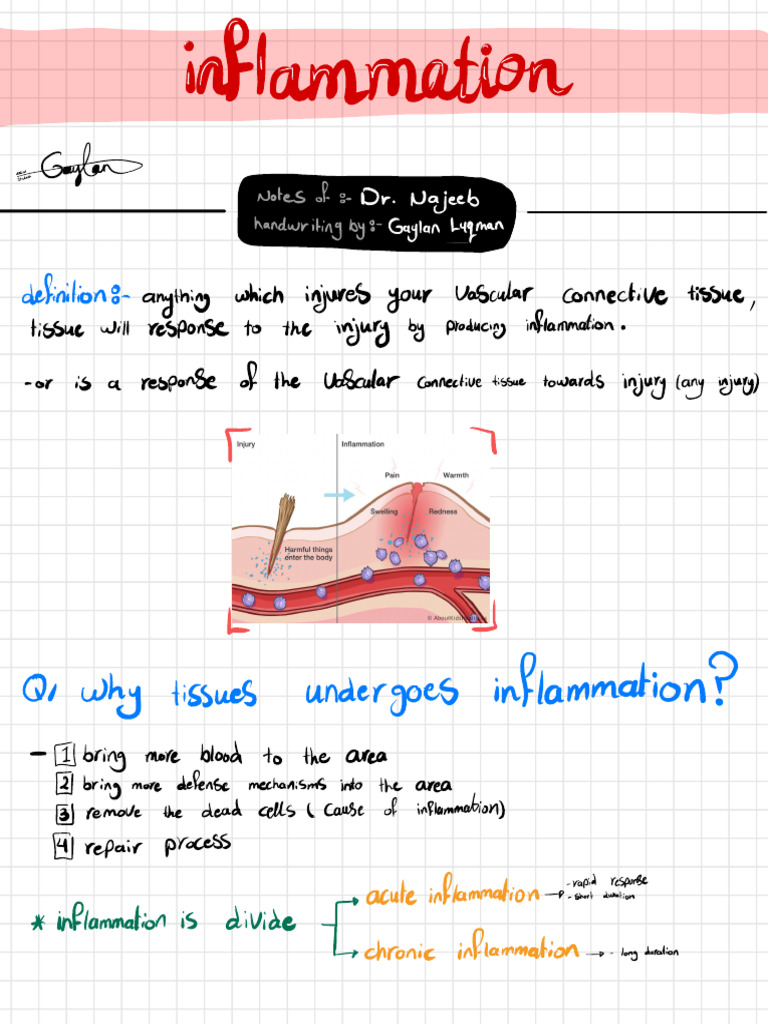 inflammation
Gaylan
Notes of :- Dr. Najeeb
handwriting by :- Gaylan Luqman
definition :- anything which injures your vascular connective tissue,
tissue will response to the injury by producing inflammation.
-or is a response of the vascular connective tissue towards injury (any injury)
Injury
Inflammation
Pain
Warmth
Swelling
Redness
Harmful things
enter the body
Q, why tissues undergoes inflammation?
- 1 bring more blood to the area
2 bring more defense mechanisms into the area
3 remove the dead cells ( cause of inflammation)
4 repair process
* inflammation is divide
acute inflammation
- rapid response
- short duration
chronic inflammation
- long duration